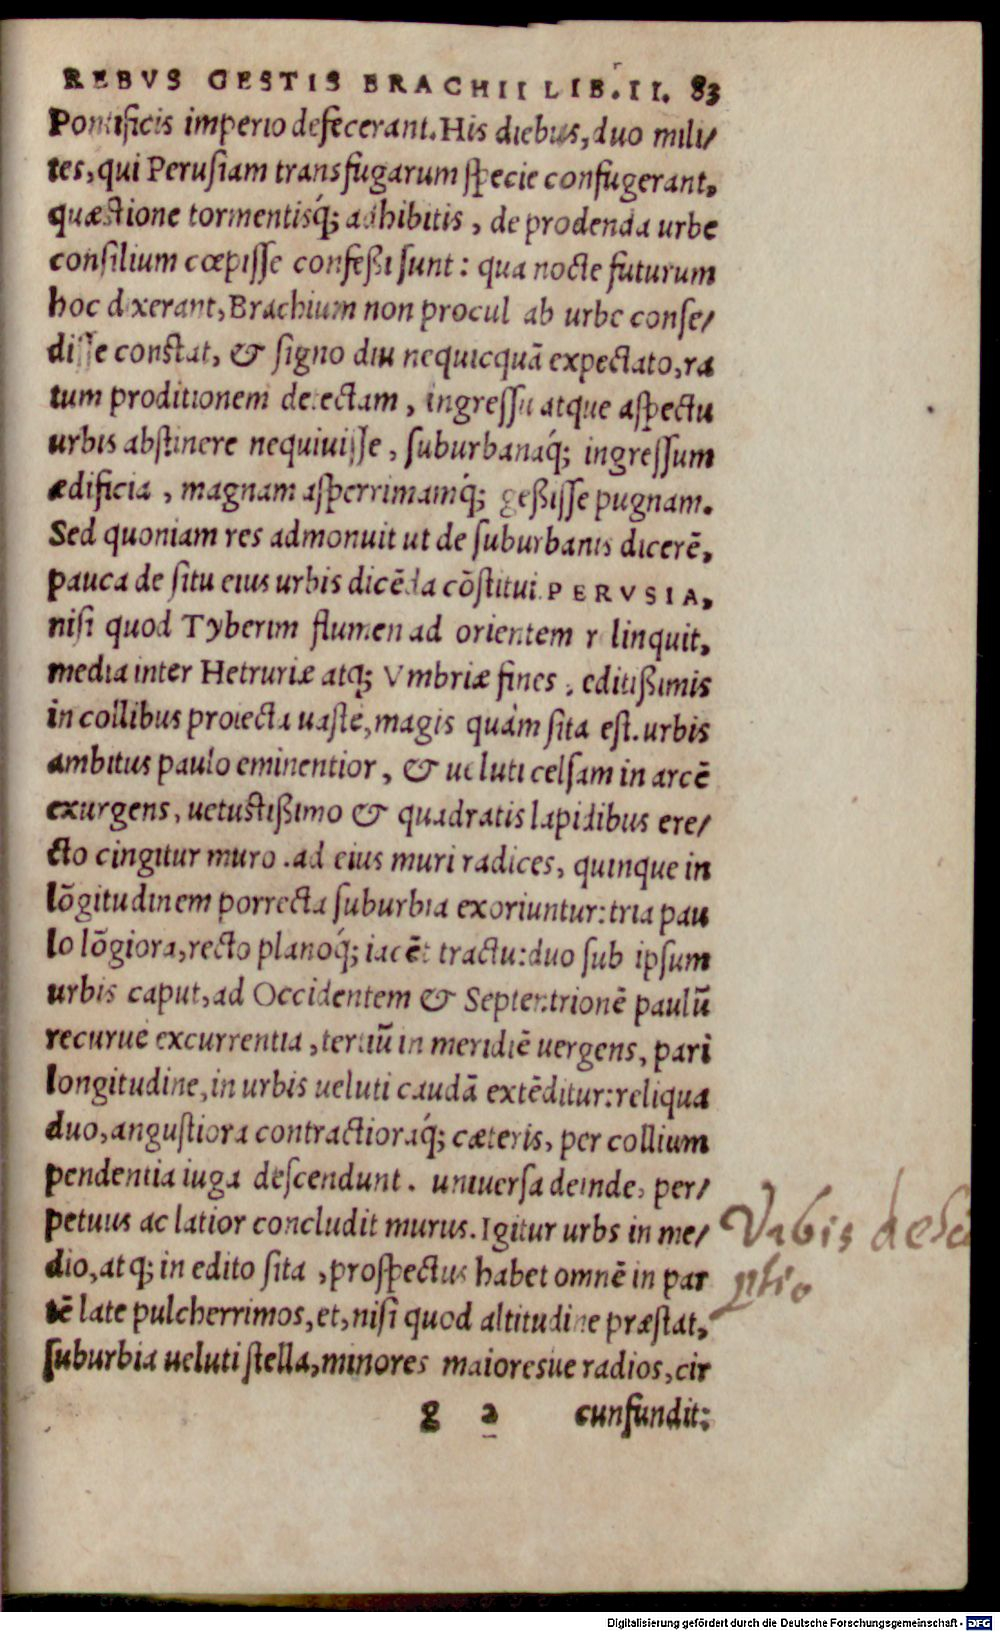 REBVS GESTIS BRACHII LIB. II. 83
Pontificis imperio defecerant. His diebus, duo mili/
tes, qui Perusiam transfugarum specie confugerant,
quæstione tormentisq́; adhibitis, de prodenda urbe
consilium cœpisse confeßi sunt: qua nocte futurum
hoc dixerant, Brachium non procul ab urbe conse/
disse constat, & signo diu nequicquā expectato, ra
tum proditionem detectam, ingressu atque aspectu
urbis abstinere nequiuisse, suburbanaq́; ingressum
ædificia, magnam asperrimamq́; geßisse pugnam.
Sed quoniam res admonuit ut de suburbanis dicerē,
pauca de situ eius urbis dicēda cōstitui. PERVSIA,
nisi quod Tyberim flumen ad orientem relinquit,
media inter Hetruriæ atq; Vmbriæ fines, editißimis
in collibus proiecta uastè, magis quàm sita est. urbis
ambitus paulo eminentior, & ueluti celsam in arcē
exurgens, uetustißimo & quadratis lapidibus ere/
cto cingitur muro. ad eius muri radices, quinque in
lōgitudinem porrecta suburbia exoriuntur: tria pau
lo lōgiora, recto planoq́; iacēt tractu: duo sub ipsum
urbis caput, ad Occidentem & Septentrionē paulū
recuruè excurrentia, tertiū in meridiē uergens, pari
longitudine, in urbis ueluti caudā extēditur: reliqua
duo, angustiora contractioraq́; cæteris, per collium
pendentia iuga descendunt. uniuersa deinde, per/
petuus ac latior concludit murus. Igitur urbs in me/
dio, atq; in edito sita, prospectus habet omnē in par
tē late pulcherrimos, et, nisi quod altitudine præstat,
suburbia ueluti stella, minores maioresue radios, cir
g 2 cunfundit:
Vrbis descri
ptio
Digitalisierung gefördert durch die Deutsche Forschungsgemeinschaft - DFG